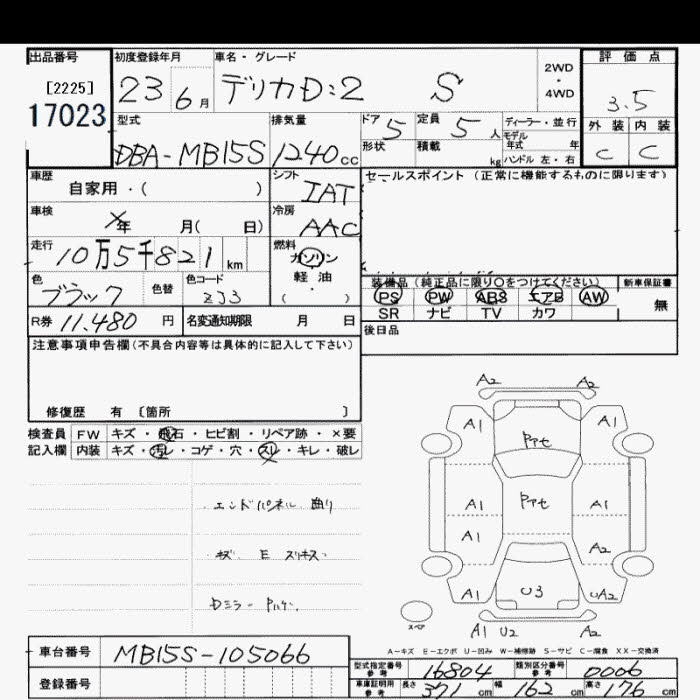 出品番号 初度登録年月 車名・グレード 評価点
[2225] 23 6月 デリカD:2 S 2WD・4WD 3.5
17023 型式 排気量 ドア 5 定員 5人 ディーラー・並行 外装 内装
DBA-MB15S 1240cc 形状 積載 kg モデル年式 年 ハンドル 左・右 C C
車歴 シフト セールスポイント (正常に機能するものに限ります)
自家用・( ) IAT
車検 年 月( 日) 冷房 AAC
走行 10万5千821km 燃料 ガソリン
軽・油
( ・ )
色 ブラック 色替 色コード ZJ3
装備品 (純正品に限り○をつけてください) 新車保証書
PS PW ABS エアB AW 無
SR ナビ TV カワ
R券 11.480円 名変通知期限 月 日 後日品
注意事項申告欄(不具合内容等は具体的に記入して下さい)
修復歴 有 [箇所 ]
検査員 FW キズ・飛石・ヒビ割・リペア跡・×要
記入欄 内装 キズ・汚レ・コゲ・穴・スリ・キレ・破レ
エンドパネル 曲り
E スリキズ
Dミラー
A2 A2
A1 A1
A1 A1
A1 A2
A1 U3 UA2
スペア A1 U2 A2
A-キズ E-エクボ U-凹み W-補修跡 S-サビ C-腐食 XX-交換済
車台番号 MB15S-105066
型式指定番号 参考 16804 類別区分番号 参考 0006
登録番号 車庫証明用 参考 長さ 371cm 幅 162cm 高さ 176cm